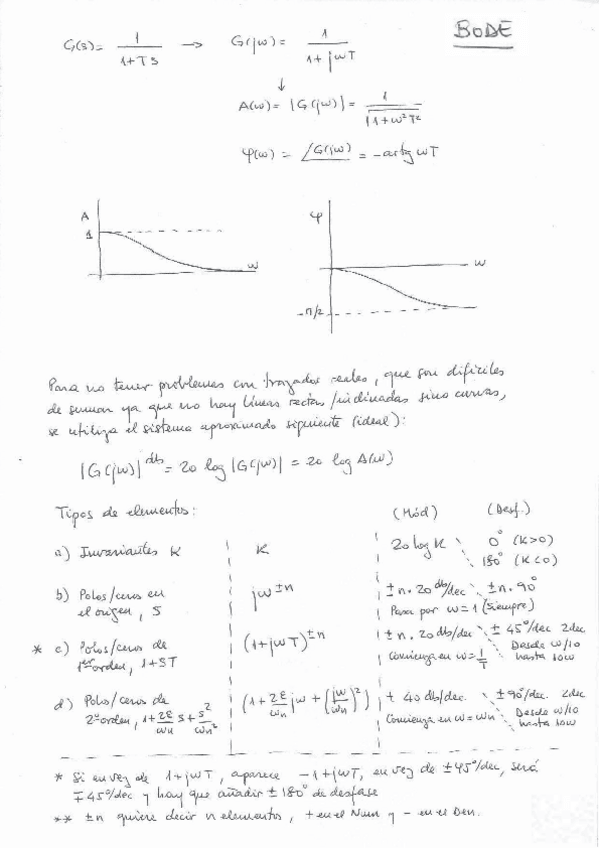 BODE
G(s) = 1/(1+Ts) → G(jω) = 1/(1+jωT)
↓
A(ω) = |G(jω)| = 1/√(1+ω²T²)
φ(ω) = ∠G(jω) = -arctg ωT
A
1
ω
φ
ω
-π/2
Para no tener problemas con trazados reales, que son difíciles
de sumar ya que no hay líneas rectas/inclinadas sino curvas,
se utiliza el sistema aproximado siguiente (ideal):
|G(jω)|^db = 20 log |G(jω)| = 20 log A(ω)
Tipos de elementos: (Mód) (Desf.)
a) Invariantes K K 20 log K 0° (K>0)
180° (K<0)
b) Polos/ceros en jω^±n ±n·20 db/dec ±n·90°
el origen, S Pasa por ω=1 (siempre)
* c) Polos/ceros de (1+jωT)^±n ±n·20 db/dec ±45°/dec 2dec
1er orden, 1+ST Comienza en ω=1/T Desde ω/10
hasta 10ω
d) Polos/ceros de (1+2ξ/ωn jω+(jω/ωn)²) ± 40 db/dec. ±90°/dec. 2dec
2º orden, 1+2ξ/ωn s+s²/ωn² Comienza en ω=ωn Desde ω/10
hasta 10ω
* Si en vez de 1+jωT, aparece -1+jωT, en vez de ±45°/dec, será
∓45°/dec y hay que añadir ±180° de desfase
** ±n quiere decir n elementos, + en el Num y - en el Den.